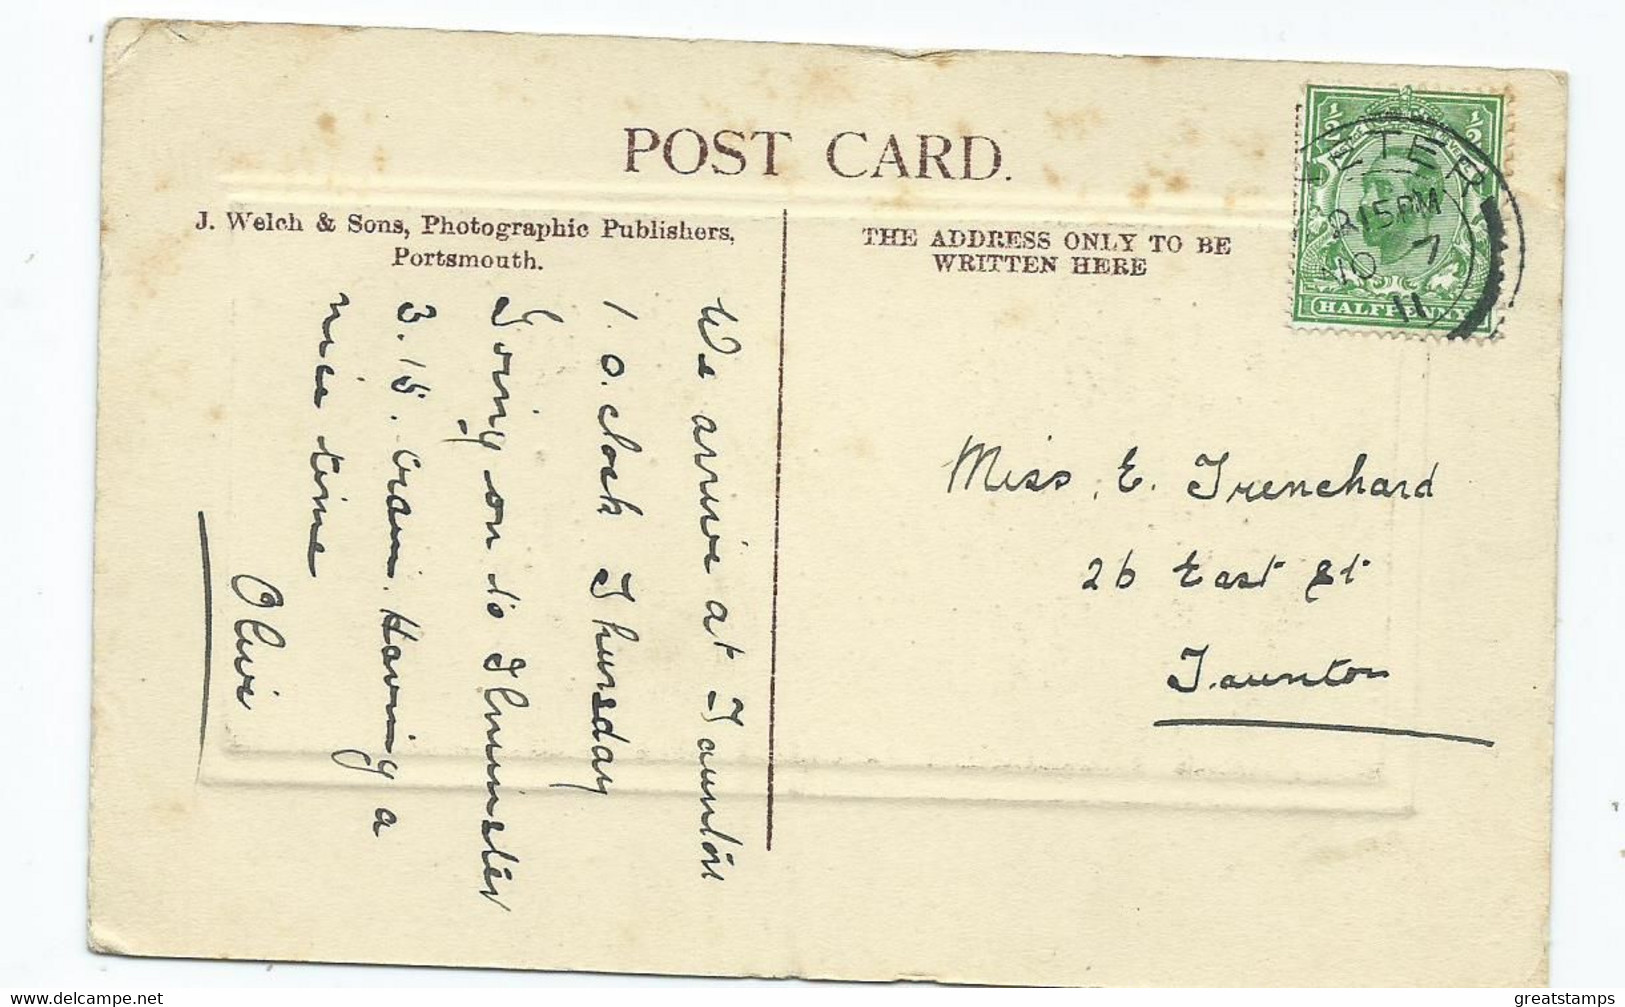 POST CARD.
J. Welch & Sons, Photographic Publishers,
Portsmouth.
THE ADDRESS ONLY TO BE
WRITTEN HERE
We arrive at Taunton
1. O. clock Thursday
Going on to Ilminster
3.15. train. Having a
nice time
Olive
Miss. E. Trenchard
26 East St
Taunton
1/2 1/2
HALFPENNY
ETER
15 PM
NO 7
11
greatstamps